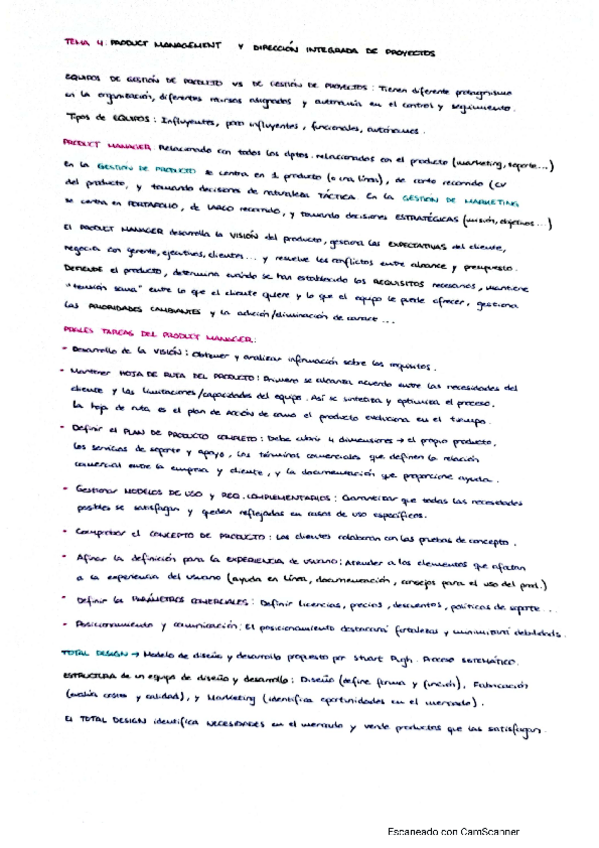 TEMA 4. PRODUCT MANAGEMENT Y DIRECCIÓN INTEGRADA DE PROYECTOS
EQUIPOS DE GESTIÓN DE PRODUCTO VS DE GESTIÓN DE PROYECTOS: Tienen diferente protagonismo
en la organización, diferentes recursos asignados y autonomía en el control y seguimiento.
Tipos de EQUIPOS: Influyentes, poco influyentes, funcionales, autónomos.
PRODUCT MANAGER. Relacionado con todos los dptos. relacionados con el producto (marketing, soporte...)
En la GESTIÓN DE PRODUCTO se centra en 1 producto (o una línea), de corto recorrido (CV
del producto, y tomando decisiones de naturaleza TÁCTICA. En la GESTIÓN DE MARKETING
se centra en PORTAFOLIO, de LARGO recorrido, y tomando decisiones ESTRATÉGICAS (misión, objetivos...)
El PRODUCT MANAGER desarrolla la VISIÓN del producto, gestiona las EXPECTATIVAS del cliente,
negocia con gerente, ejecutivos, clientes... y resuelve los conflictos entre alcance y presupuesto.
DEFIENDE el producto, determina cuándo se han establecido los REQUISITOS necesarios, mantiene
"tensión sana" entre lo que el cliente quiere y lo que el equipo le puede ofrecer, gestiona
las PRIORIDADES CAMBIANTES y la adición/eliminación de
TAREAS DEL PRODUCT MANAGER:
- Desarrollo de la VISIÓN: Obtener y analizar información sobre los requisitos.
- Mantener HOJA DE RUTA DEL PRODUCTO: Primero se alcanza acuerdo entre las necesidades del
cliente y las limitaciones/capacidades del equipo. Así se sintetiza y optimiza el proceso.
La hoja de ruta es el plan de acción de como el producto evoluciona en el tiempo.
- Definir el PLAN DE PRODUCTO COMPLETO: Debe cubrir 4 dimensiones → el propio producto,
los servicios de soporte y apoyo, los términos comerciales que definen la relación
comercial entre la empresa y cliente, y la documentación que proporcione ayuda.
- Gestionar MODELOS DE USO y REQ. COMPLEMENTARIOS: Garantizar que todas las necesidades
posibles se satisfagan y queden reflejadas en casos de uso específicos.
- Comprobar el CONCEPTO DE PRODUCTO: Los clientes colaboran con las pruebas de concepto.
- Afinar la definición para la EXPERIENCIA DE USUARIO: Atender a los elementos que afectan
a la experiencia del usuario (ayuda en línea, documentación, consejos para el uso del prod.)
- Definir los PARÁMETROS COMERCIALES: Definir licencias, precios, descuentos, políticas de soporte...
- Posicionamiento y comunicación: El posicionamiento destacará fortalezas y minimizará debilidades.
TOTAL DESIGN → Modelo de diseño y desarrollo propuesto por Stuart Pugh. Proceso SISTEMÁTICO.
ESTRUCTURA de un equipo de diseño y desarrollo: Diseño (define forma y función), Fabricación
(evalúa costes y calidad), y Marketing (identifica oportunidades en el mercado).
El TOTAL DESIGN identifica NECESIDADES en el mercado y vende productos que las satisfagan.
Escaneado con CamScanner